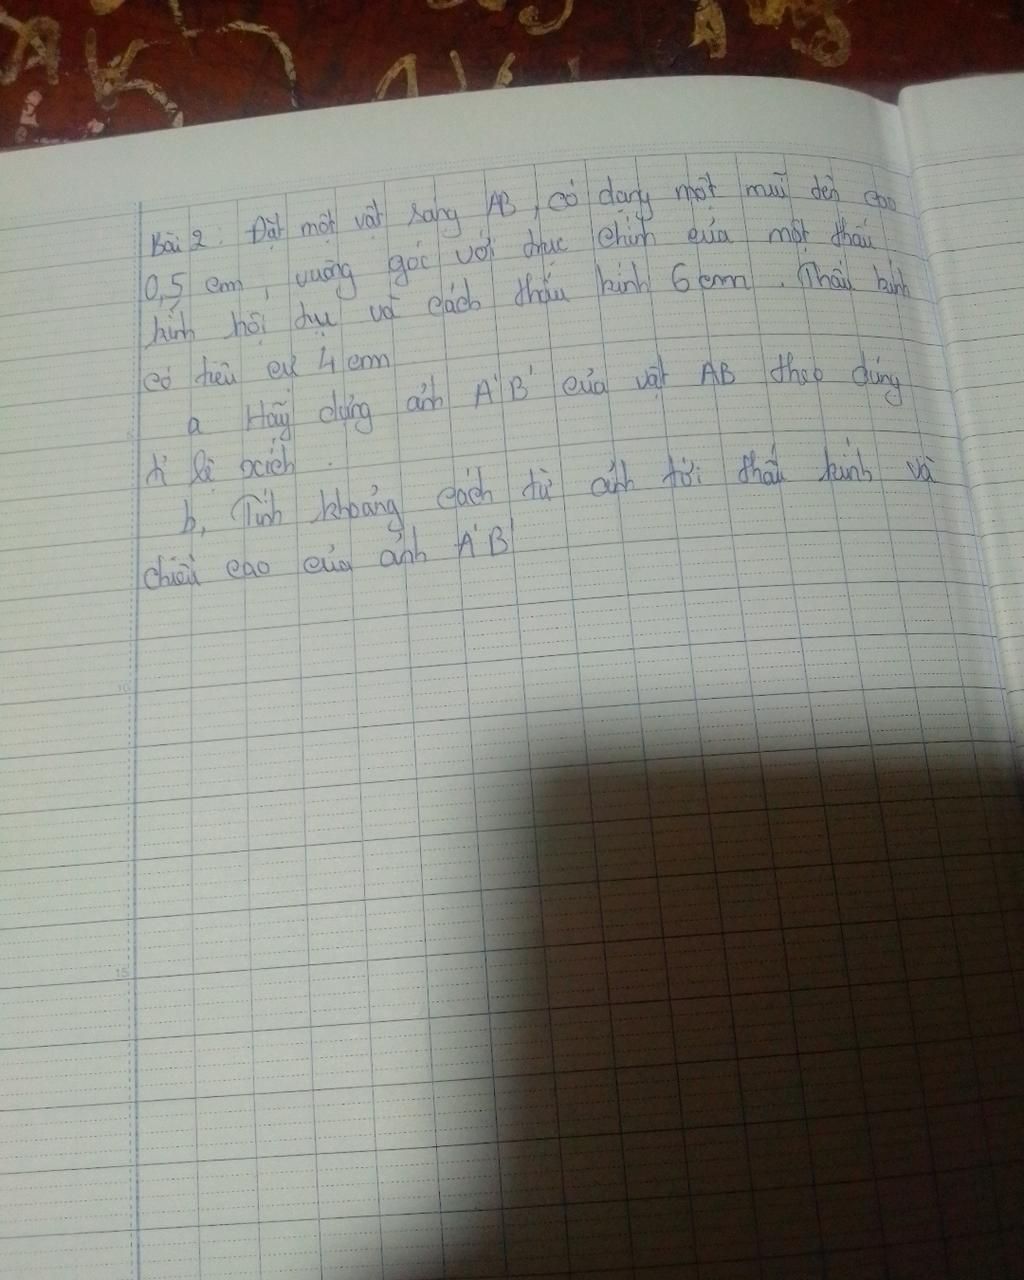 Bài 2: Đặt một vật sáng AB, có dạng một mũi tên cao
0,5 cm, vuông góc với trục chính của một thấu
kính hội tụ và cách thấu kính 6 cm. Thấu kính
có tiêu cự 4 cm
a Hãy dựng ảnh A'B' của vật AB theo đúng
tỉ lệ xích.
b, Tính khoảng cách từ ảnh tới thấu kính và
chiều cao của ảnh A'B'
10
15